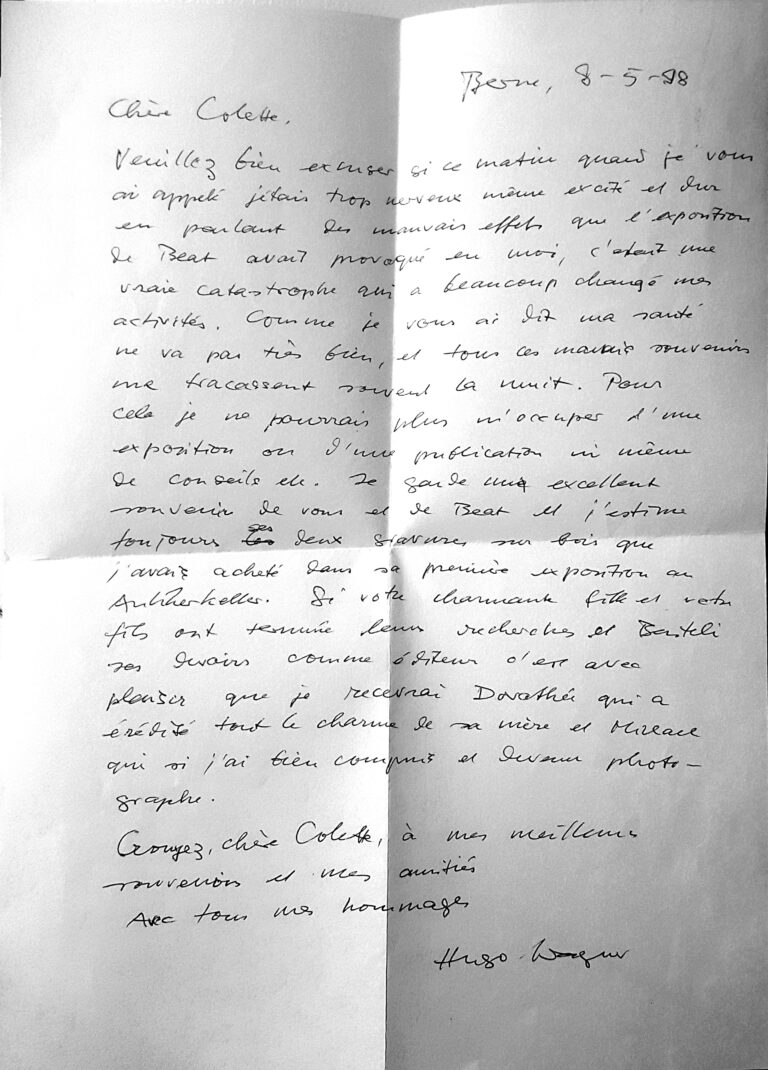 Berne, 8-5-98
Chère Colette,
Veuillez bien excuser si ce matin quand je vous
ai appelé j'étais trop nerveux même excité et dur
en parlant des mauvais effets que l'exposition
de Beat avait provoqué en moi, c'était une
vraie catastrophe qui a beaucoup changé mes
activités. Comme je vous ai dit ma santé
ne va pas très bien, et tous ces mauvais souvenirs
me tracassent souvent la nuit. Pour
cela je ne pourrais plus m'occuper d'une
exposition ou d'une publication ni même
de conseils etc. Je garde un excellent
souvenir de vous et de Beat et j'estime
toujours ses deux gravures sur bois que
j'avais acheté dans sa première exposition au
Ankerkeller. Si votre charmante fille et votre
fils ont terminé leurs recherches et Benteli
ses devoirs comme éditeur c'est avec
plaisir que je recevrai Dorothée qui a
érédité tout le charme de sa mère et
qui si j'ai bien compris et devenu photo-
graphe.
Croyez, chère Colette, à mes meilleurs
souvenirs et mes amitiés
Avec tous mes hommages
Hugo Wagner